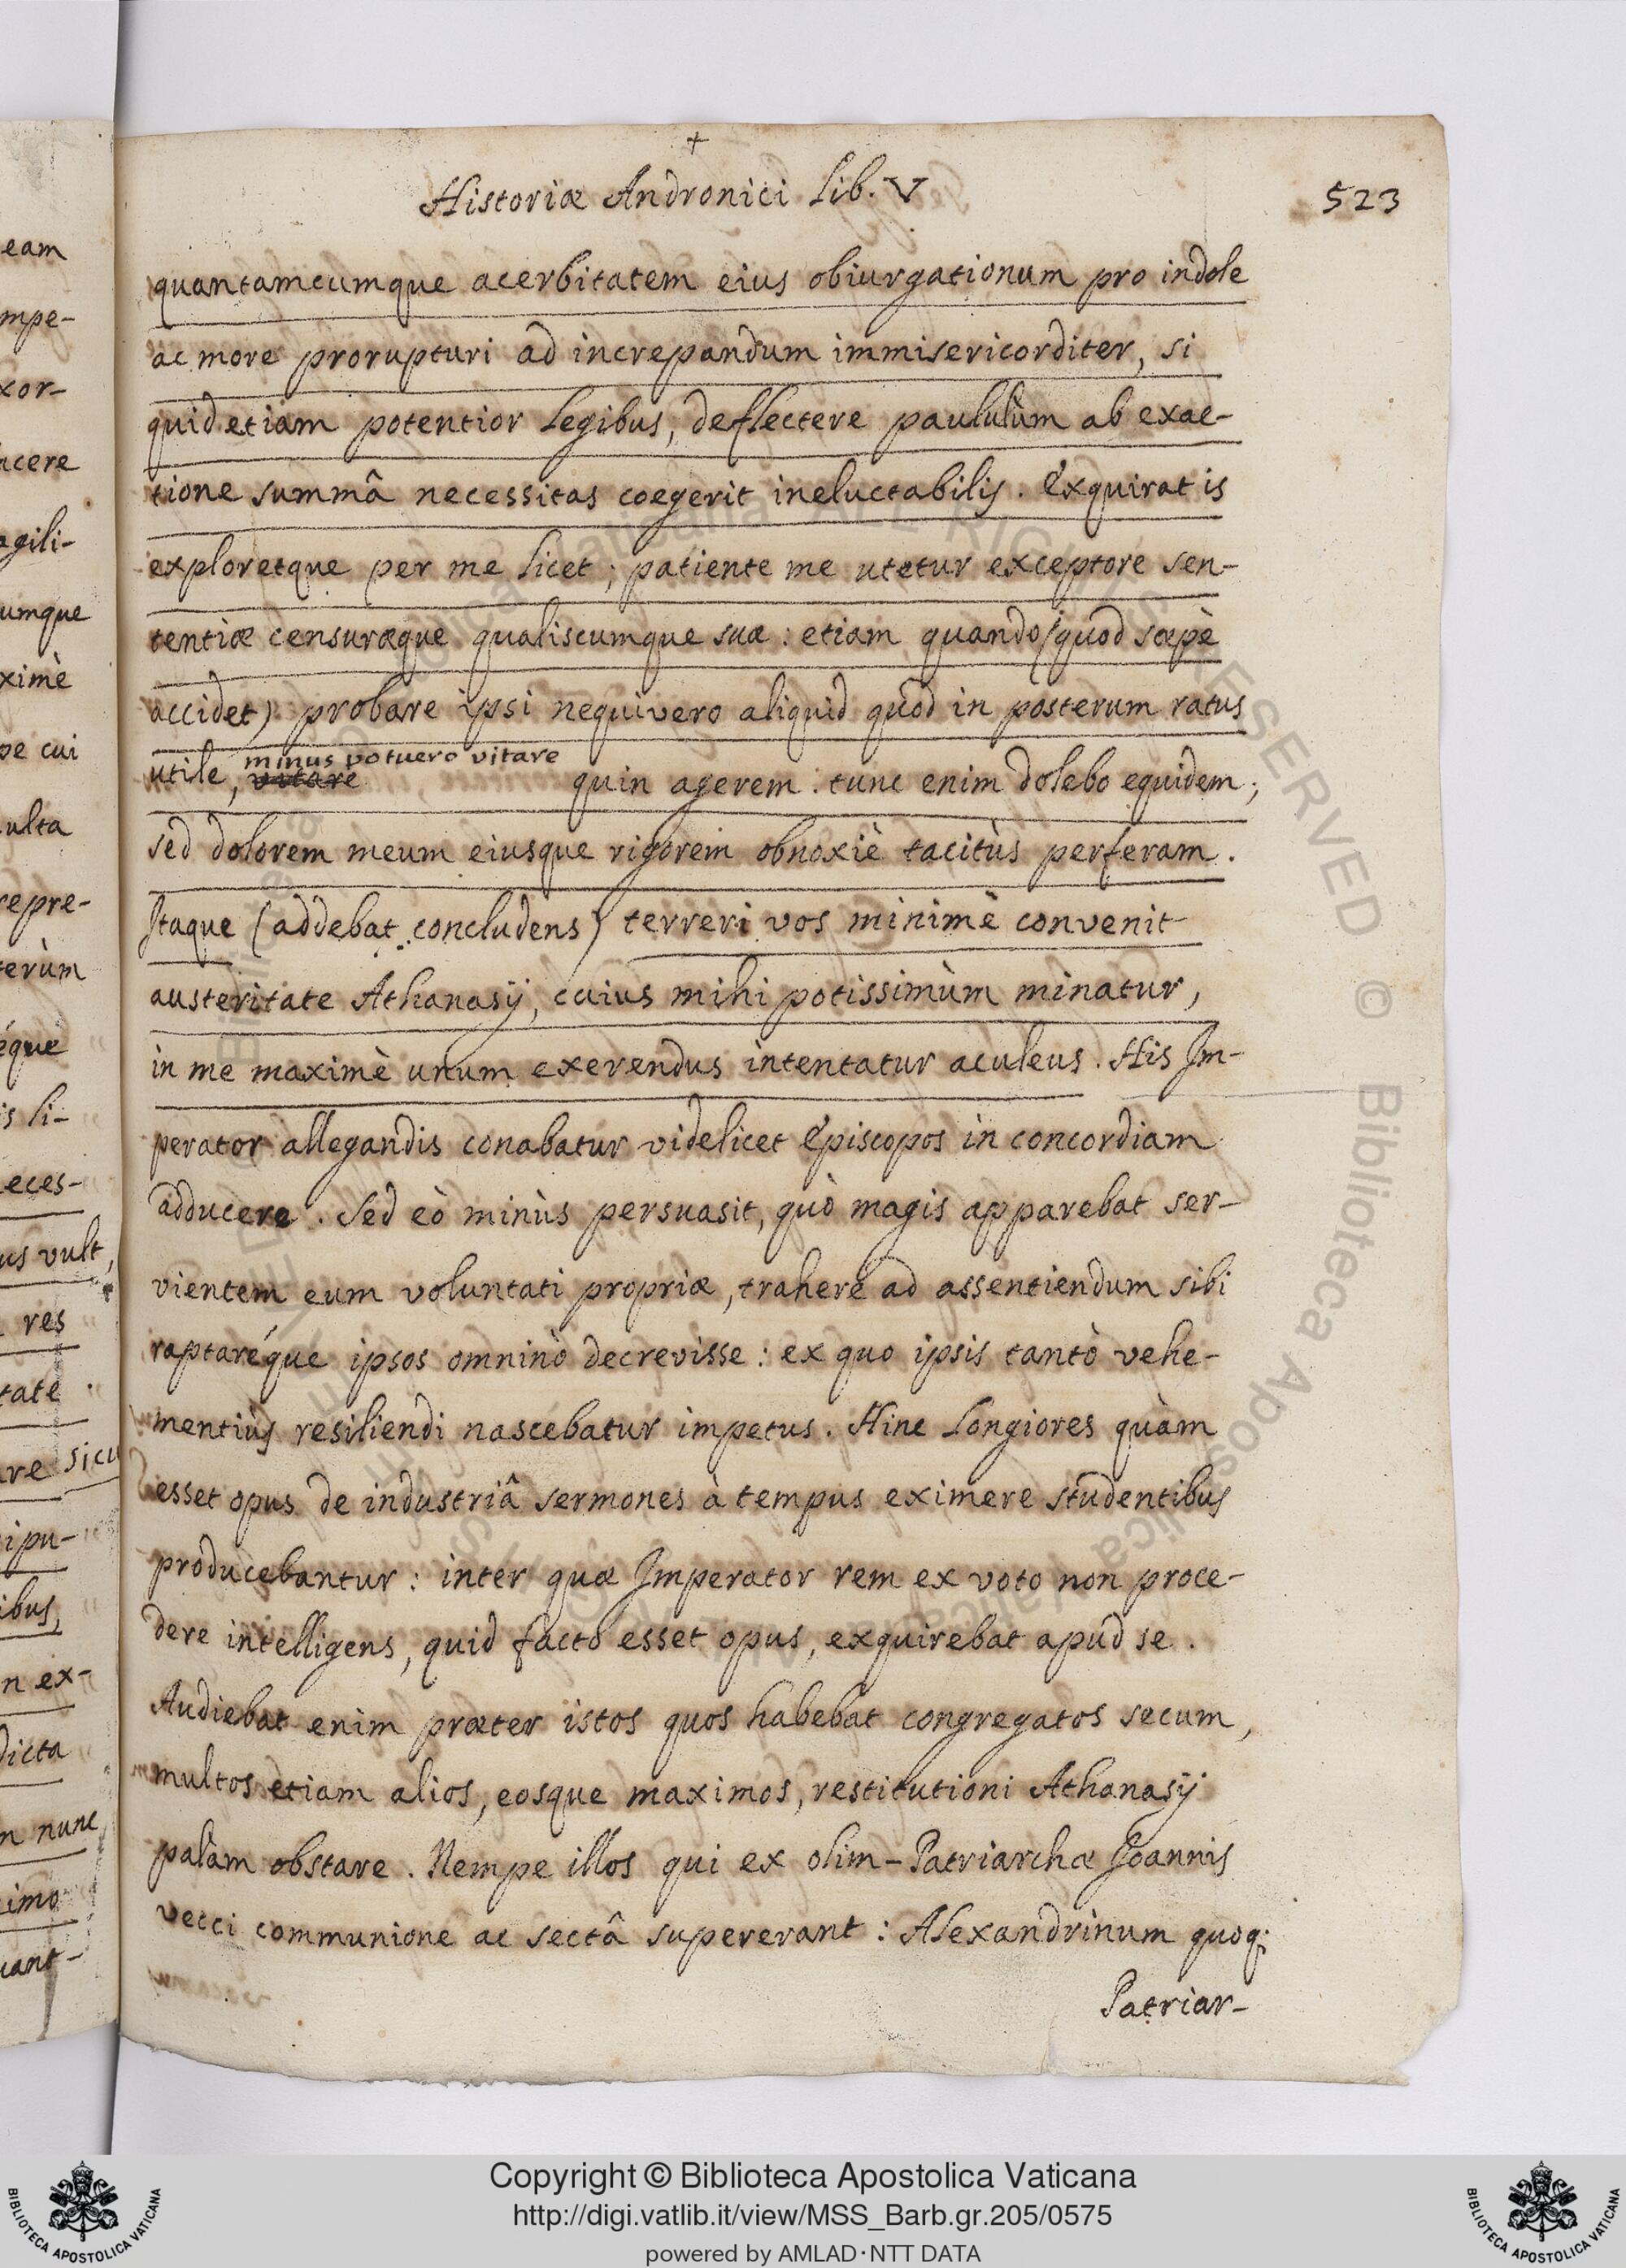 +
Historiæ Andronici Lib. V
523
quantamcumque acerbitatem eius obiurgationum pro indole
ac more prorupturi ad increpandum immisericorditer, si
quid etiam potentior legibus, deflectere paululùm ab exac-
tione summâ necessitas coegerit ineluctabilis. Exquirat is
exploretque per me licet; patiente me utetur exceptore sen-
tentiæ censuræque qualiscumque suæ: etiam quando (quod sæpè
accidet) probare ipsi nequivero aliquid quod in posterum ratus
minus potuero vitare
utile, vitare quin agerem: tunc enim dolebo equidem;
sed dolorem meum eiusque rigorem obnoxiè tacitùs perferam.
Itaque (addebat concludens) terreri vos minimè convenit
austeritate Athanasij, cuius mihi potissimùm minatur,
in me maximè unum exerendus intentatur aculeus. His Im-
perator allegandis conabatur videlicet Episcopos in concordiam
adducere. Sed eò minùs persuasit, quò magis apparebat ser-
vientem eum voluntati propriæ, trahere ad assentiendum sibi
raptaréque ipsos omninò decrevisse: ex quo ipsis tantò vehe-
mentiùs resiliendi nascebatur impetus. Hinc longiores quàm
esset opus de industriâ sermones à tempus eximere studentibus
producebantur: inter quæ Imperator rem ex voto non proce-
dere intelligens, quid facto esset opus, exquirebat apud se.
Audiebat enim præter istos quos habebat congregatos secum,
multos etiam alios, eosque maximos, restitutioni Athanasij
palàm obstare. Nempe illos qui ex olim-Patriarchæ Joannis
Vecci communione ac sectâ supererant: Alexandrinum quoq;
Patriar-
eam
mpe-
xor-
acere
agili-
umque
ximè
pe cui
ulta
repre-
terùm
éque
is li-
eces-
us vult,
res
tate.
are sicu
ipu-
ibus,
n ex-
dicta
n nunc
imo
uant-
Copyright © Biblioteca Apostolica Vaticana
http://digi.vatlib.it/view/MSS_Barb.gr.205/0575
powered by AMLAD·NTT DATA
BIBLIOTECA APOSTOLICA VATICANA
BIBLIOTECA APOSTOLICA VATICANA